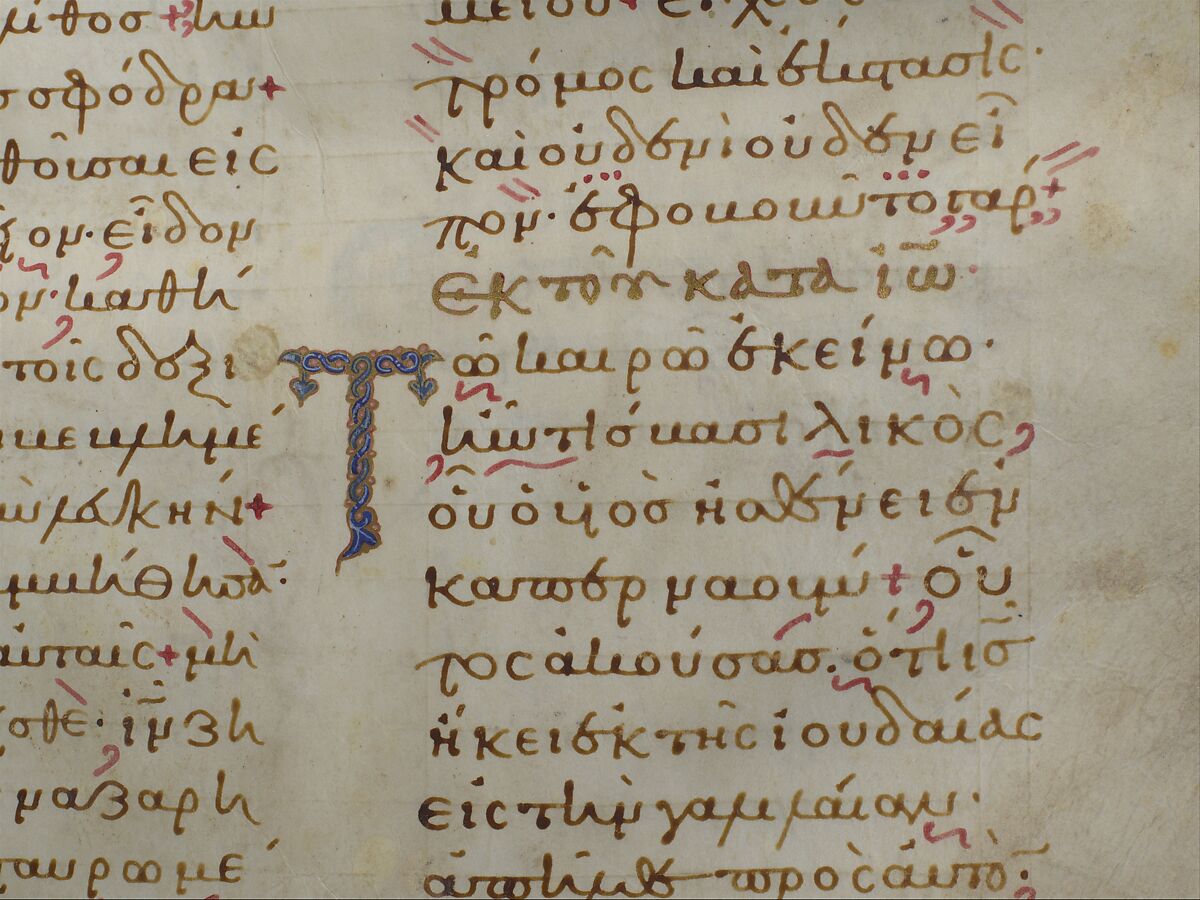 λίθος + ἦν
ς σφόδρα +
θοῦσαι εἰς
ον· εἶδον
ον· καθή
τοῖς δεξι
βεβλημέ
ὴν λευκὴν +
αμβήθησᾱ·
αὐταῖς + μὴ
σθε· ἰ̅ν̅ ζη
ναζαρη
ταυρωμέ
μείου + εἶχ
τρόμος καὶ ἔκστασις·
καὶ οὐδενὶ οὐδὲν εἶ
πον· ἐφοβοῦντο γάρ +
ἐκ τοῦ κατὰ ἰω̅·
Τῶ καιρῶ ἐκείνω·
ἦν τὶς βασιλικὸς
οὗ ὁ υἱὸς ἠσθένει ἐν
καπερναούμ + οὗ
τος ἀκούσας· ὅτι ι̅ς̅
ἥκει ἐκ τῆς ἰουδαίας
εἰς τὴν γαλιλαίαν·
ἀπῆλθε πρὸς αὐτὸ̄·